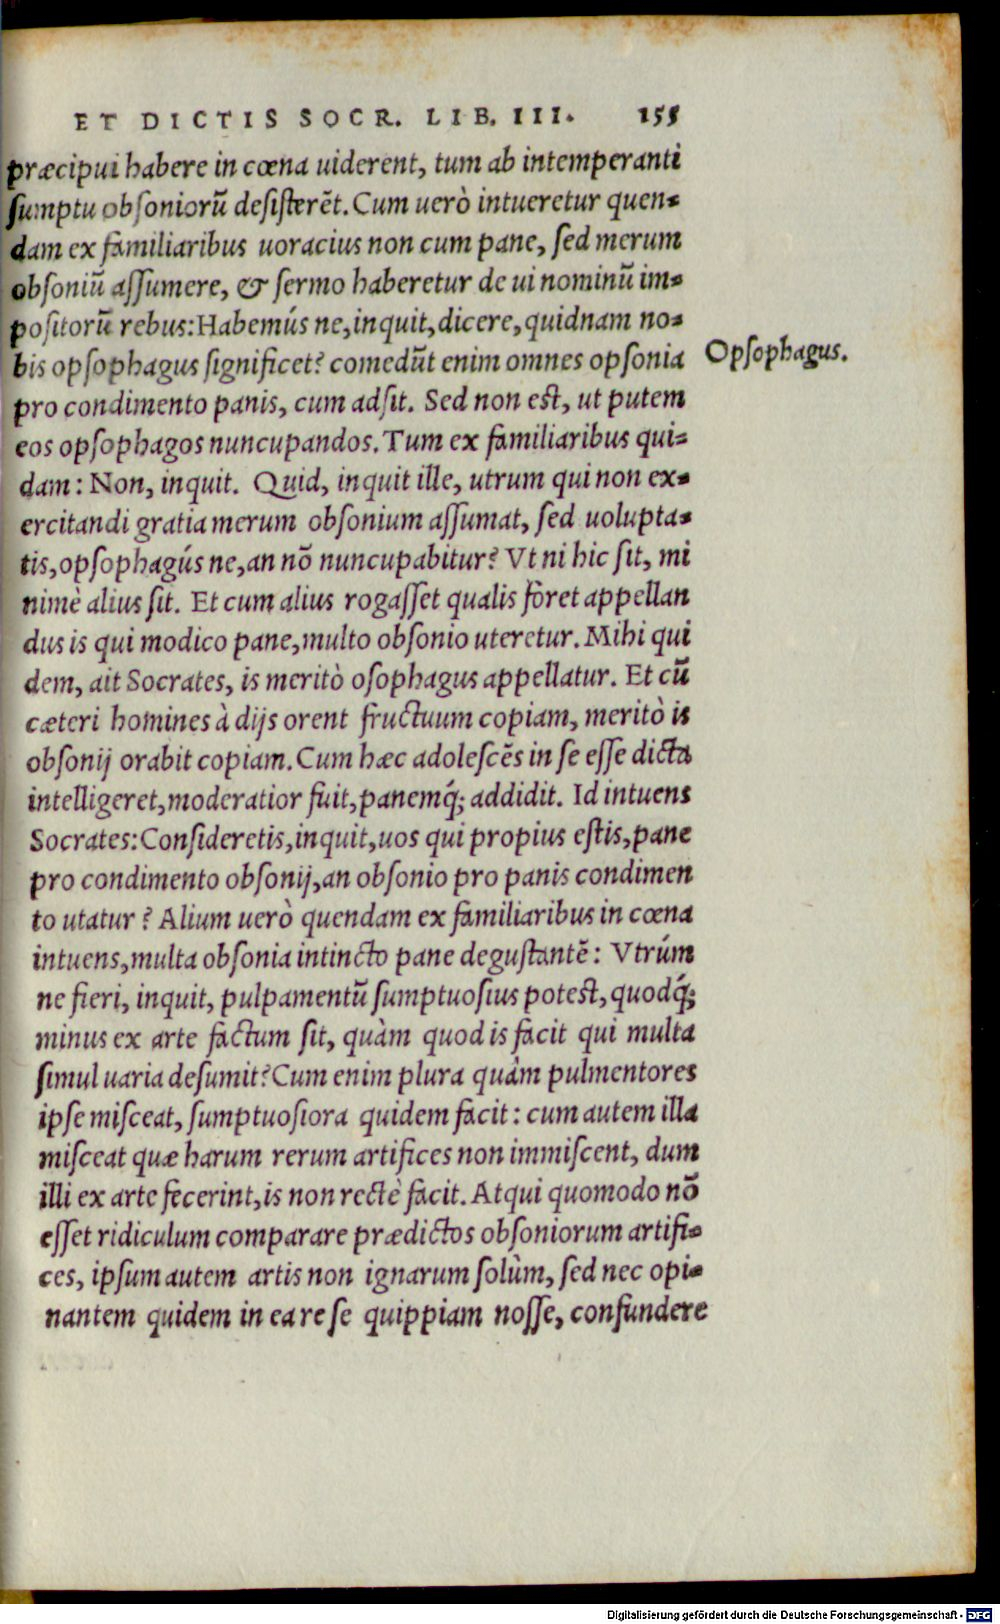 ET DICTIS SOCR. LIB. III. 155
præcipui habere in cœna uiderent, tum ab intemperanti
ſumptu obſoniorũ deſiſterẽt. Cum uerò intueretur quen-
dam ex familiaribus uoracius non cum pane, ſed merum
obſoniũ aſſumere, & ſermo haberetur de ui nominũ im-
poſitorũ rebus: Habemús ne, inquit, dicere, quidnam no-
bis opſophagus ſignificet? comedũt enim omnes opſonia
Opſophagus.
pro condimento panis, cum adſit. Sed non eſt, ut putem
eos opſophagos nuncupandos. Tum ex familiaribus qui-
dam: Non, inquit. Quid, inquit ille, utrum qui non ex-
ercitandi gratia merum obſonium aſſumat, ſed uolupta-
tis, opſophagús ne, an nõ nuncupabitur? Vt ni hic ſit, mi
nimè alius ſit. Et cum alius rogaſſet qualis foret appellan
dus is qui modico pane, multo obſonio uteretur. Mihi qui
dem, ait Socrates, is meritò oſophagus appellatur. Et cũ
cæteri homines à dijs orent fructuum copiam, meritò is
obſonij orabit copiam. Cum hæc adoleſcẽs in ſe eſſe dicta
intelligeret, moderatior fuit, panemq́; addidit. Id intuens
Socrates: Conſideretis, inquit, uos qui propius eſtis, pane
pro condimento obſonij, an obſonio pro panis condimen
to utatur? Alium uerò quendam ex familiaribus in cœna
intuens, multa obſonia intincto pane deguſtantẽ: Vtrúm
ne fieri, inquit, pulpamentũ ſumptuoſius poteſt, quodq́;
minus ex arte factum ſit, quàm quod is facit qui multa
ſimul uaria deſumit? Cum enim plura quàm pulmentores
ipſe miſceat, ſumptuoſiora quidem facit: cum autem illa
miſceat quæ harum rerum artifices non immiſcent, dum
illi ex arte fecerint, is non rectè facit. Atqui quomodo nõ
eſſet ridiculum comparare prædictos obſoniorum artifi-
ces, ipſum autem artis non ignarum ſolùm, ſed nec opi-
nantem quidem in ea re ſe quippiam noſſe, confundere
Digitalisierung gefördert durch die Deutsche Forschungsgemeinschaft - DFG